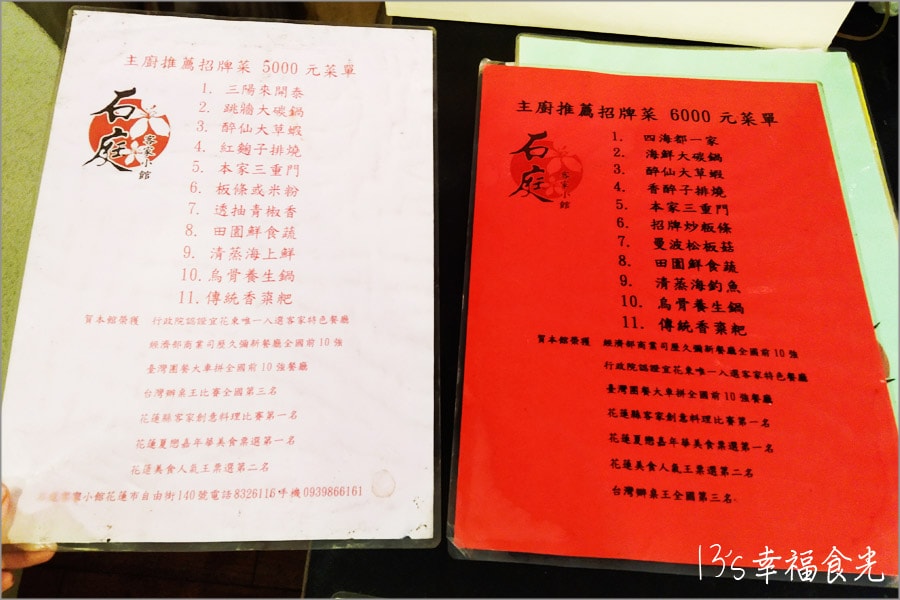 主廚推薦招牌菜 5000 元菜單
石庭
客家小館
1. 三陽來開泰
2. 跳牆大碳鍋
3. 醉仙大草蝦
4. 紅麴子排燒
5. 本家三重門
6. 板條或米粉
7. 透抽青椒香
8. 田園鮮食蔬
9. 清蒸海上鮮
10. 烏骨養生鍋
11. 傳統香棗粑
賀本館榮獲 行政院認證宜花東唯一入選客家特色餐廳
經濟部商業司歷久彌新餐廳全國前10強
臺灣團餐大車拼全國前10強餐廳
台灣辦桌王比賽全國第三名
花蓮縣客家創意料理比賽第一名
花蓮夏戀嘉年華美食票選第一名
花蓮美食人氣王票選第二名
小館花蓮市自由街140號電話8326116手機0939866161
主廚推薦招牌菜 6000 元菜單
石庭
客家小館
1. 四海都一家
2. 海鮮大碳鍋
3. 醉仙大草蝦
4. 香醉子排燒
5. 本家三重門
6. 招牌炒粄條
7. 曼波松板菇
8. 田園鮮食蔬
9. 清蒸海釣魚
10. 烏骨養生鍋
11. 傳統香棗粑
賀本館榮獲 經濟部商業司歷久彌新餐廳全國前10強
行政院認證宜花東唯一入選客家特色餐廳
臺灣團餐大車拼全國前10強餐廳
花蓮縣客家創意料理比賽第一名
花蓮夏戀嘉年華美食票選第一名
花蓮美食人氣王票選第二名
台灣辦桌王全國第三名
13's幸福食光